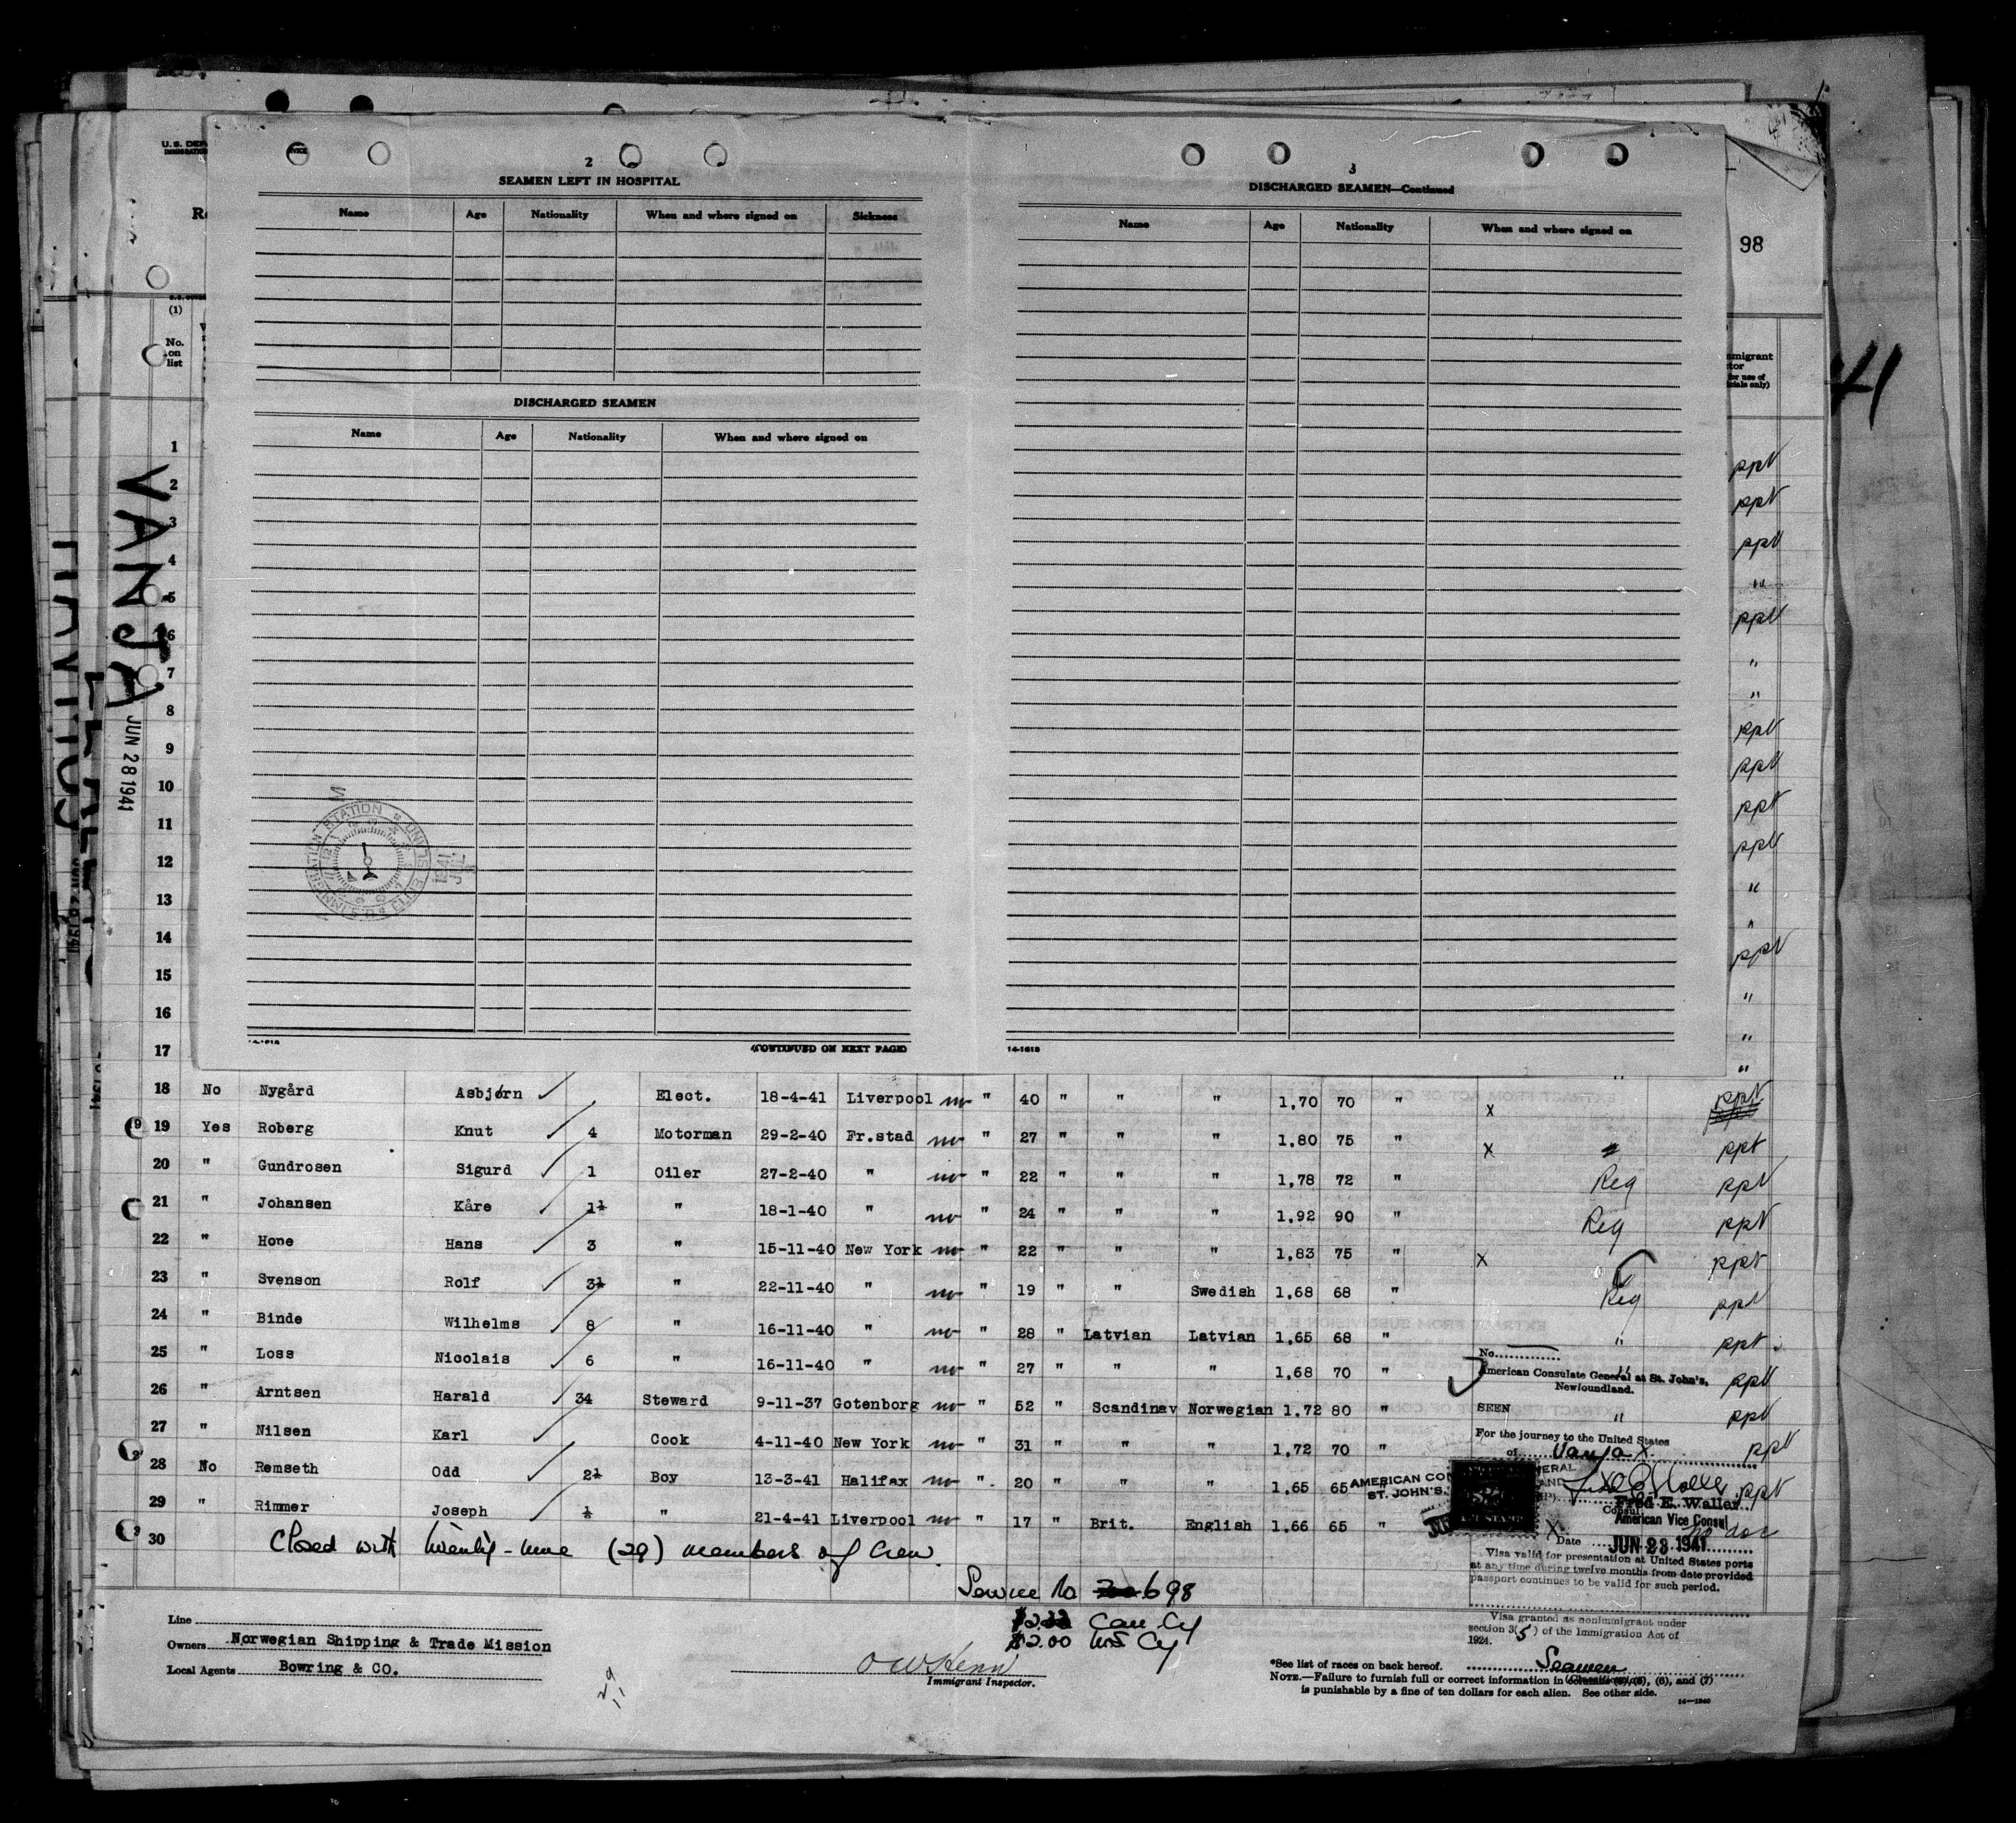 U.S. DEP
IMMIGRATION
98
2
SEAMEN LEFT IN HOSPITAL
Name Age Nationality When and where signed on Sickness
DISCHARGED SEAMEN
Name Age Nationality When and where signed on
(CONTINUED ON NEXT PAGE)
3
DISCHARGED SEAMEN—Continued
Name Age Nationality When and where signed on
14-1618
(1)
No. on list
VANJA
JUN 28 1941
41
1 ppt
2 ppt
3 ppt
4 "
5 ppt
6 "
7 "
8 ppt
9 ppt
10 ppt
11 ppt
12 "
13 "
14 ppt
15 "
16 "
17 "
18 No Nygård Asbjørn Elect. 18-4-41 Liverpool no " 40 " " " 1,70 70 " x ppt
19 Yes Roberg Knut 4 Motorman 29-2-40 Fr.stad no " 27 " " " 1,80 75 " x ppt
20 " Gundrosen Sigurd 1 Oiler 27-2-40 " no " 22 " " " 1,78 72 " Reg ppt
21 " Johansen Kåre 1½ " 18-1-40 " no " 24 " " " 1,92 90 " Reg ppt
22 " Hone Hans 3 " 15-11-40 New York no " 22 " " " 1,83 75 " x ppt
23 " Svenson Rolf 3½ " 22-11-40 " no " 19 " " Swedish 1,68 68 " Reg ppt
24 " Binde Wilhelms 8 " 16-11-40 " no " 28 " Latvian Latvian 1,65 68 " " ppt
25 " Loss Nicolais 6 " 16-11-40 " no " 27 " " " 1,68 70 " " ppt
26 " Arntsen Harald 34 Steward 9-11-37 Gotenborg no " 52 " Scandinav Norwegian 1,72 80 " " ppt
27 " Nilsen Karl Cook 4-11-40 New York no " 31 " " " 1,72 70 " x ppt
28 No Remseth Odd 2½ Boy 13-3-41 Halifax no " 20 " " " 1,65 65 " ppt
29 " Rimmer Joseph ½ " 21-4-41 Liverpool no " 17 " Brit. English 1,66 65 " x no doc
30 Closed with twenty-nine (29) members of Crew.
No.
American Consulate General at St. John's,
Newfoundland.
SEEN
For the journey to the United States
of Vanja
Fred E. Waller
American Vice Consul
Date JUN 23 1941
Visa valid for presentation at United States ports
at any time during twelve months from date provided
passport continues to be valid for such period.
Visa granted as nonimmigrant under
section 3(5) of the Immigration Act of
1924.
Seamen
Service No 698
$2.00 Can Cy
$2.00 US Cy
Line
Owners Norwegian Shipping & Trade Mission
Local Agents Bowring & CO.
Immigrant Inspector.
*See list of races on back hereof.
NOTE.—Failure to furnish full or correct information in columns (5), (6), and (7)
is punishable by a fine of ten dollars for each alien. See other side.
14—1240